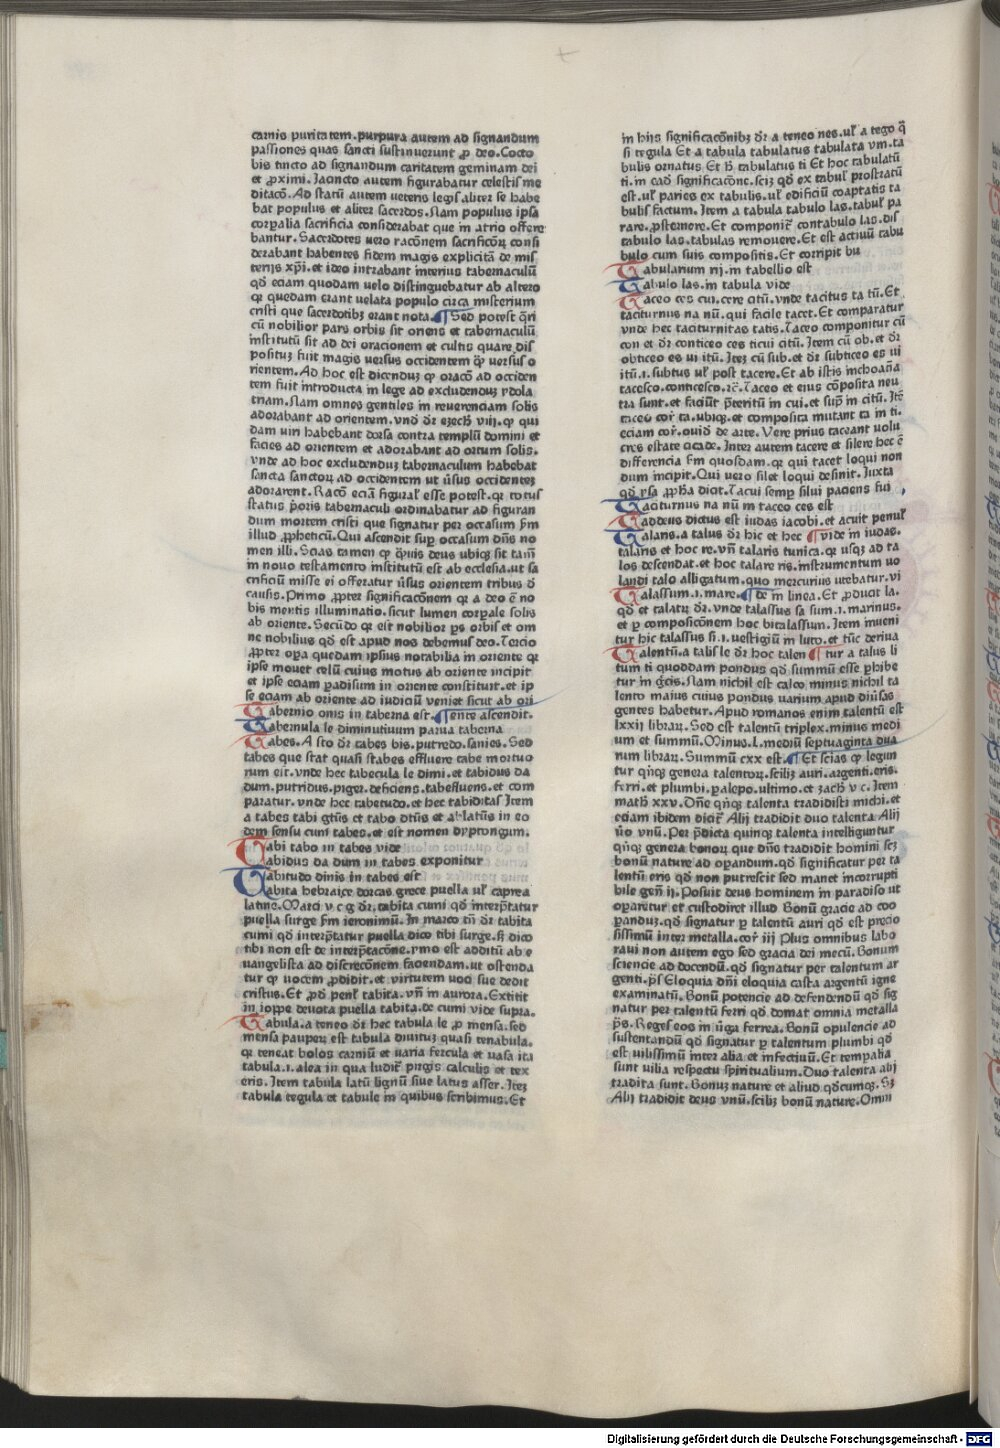 carnis puritatem.purpura autem ad signandum
passiones quas sancti sustinuerunt ꝓ deo.Cocto
bis tincto ad signandum caritatem geminam dei
et ꝓximi. Jacincto autem figurabatur celestis me
ditacō.Ad statū autem veteris legis aliter se habe
bat populus et aliter sacerdos.Nam populus ipsa
corꝑalia sacrificia considerabat que in atrio offere
bantur.Sacerdotes uero racōnem sacrificioꝝ consi
derabant habentes fidem magis explicitā de mis
terijs xp̄i.et ideo intrabant interius tabernaculū
qd̄ eciam quodam uelo distinguebatur ab altero
qꝛ quedam erant uelata populo circa misterium
cristi que sacerdotibꝫ erant nota.¶Sed potest q̄ri
cū nobilior pars orbis sit oriens et tabernaculū
institutū sit ad dei oracionem et cultū quare dis
positus fuit magis versus occidentem qꝫ versus o
rientem.Ad hoc est dicendū ꝙ oracō ad occiden
tem fuit introducta in lege ad excludendū ydola
triam.Nam omnes gentiles in reuerenciam solis
adorabant ad orientem.vnd̄ dꝛ ezech̄ viij.ꝙ qui
dam uiri habebant dorsa contra templū domini et
facies ad orientem et adorabant ad ortum solis.
vnde ad hoc excludendū tabernaculum habebat
sancta sanctoꝝ ad occidentem ut ūsus occidentē
adorarent.Racō eciā figural' esse potest.qꝛ totus
status p̄oris tabernaculi ordinabatur ad figuran
dum mortem cristi que signatur per occasum ẜm
illud ꝓpheticū.Qui ascendit suꝑ occasum dn̄s no
men illi.Scias tamen ꝙ q̄uis deus ubiqꝫ sit tam̄
in nouo testamento institutū est ab ecclesia.ut sa
crificiū misse ei offeratur ūsus orientem tribus d̄
causis.Primo ꝓpter significacōnem qꝛ a deo ē no
bis mentis illuminatio.sicut lumen corꝑale solis
ab oriente.Secūdo qꝛ est nobilior ꝑs orbis et om
ne nobilius qd̄ est apud nos debemus deo.Tercio
ꝓpter oꝑa quedam ipsius notabilia in oriente qꝛ
ipse mouet celū cuius motus ab oriente incipit
et ipse eciam ꝑadisum in oriente constituit.et ip
se eciam ab oriente ad iudiciū veniet sicut ab ori
Tabernio onis in taberna est.¶ente ascendit.
Tabernula le diminutiuum parua taberna
Tabes.A sto dꝛ tabes bis.putredo.sanies.Sed
tabes que stat quasi stabes effluere tabe mortuo
rum est.vnde hec tabecula le dimi.et tabidus da
dum.putridus.piger.deficiens.tabefluens.et com
paratur.vnde hec tabetudo.et hec tabiditas Item
a tabes tabi gtū̄s et tabo dtū̄s et ablatūs in eo
dem sensu cum tabes.et est nomen dyptongum.
Tabi tabo in tabes vide
Tabidus da dum in tabes exponitur
Tabitudo dinis in tabes est
Tabita hebraice dorcas grece puella ul' caprea
latine.Marci v c g dꝛ.tabita cumi qd̄ interp̄tatur
puella surge ẜm ieronimū.In marco tn̄ dꝛ tabita
cumi qd̄ interp̄tatur puella dico tibi surge.ẜ dico
tibi non est de interp̄tacōne.ymo est additū ab e
uangelista ad discrecōnem faciendam.ut ostenda
tur ꝙ uocem ꝓdidit.et virtutem uoci sue dedit
cristus.Et ꝓd̄ penl' tabita.vn̄ in aurora.Extitit
in ioppe deuota puella tabita.de cumi vide supra.
Tabula.a teneo dꝛ hec tabule le ꝓ mensa.sed
mensa pauperꝝ est tabula diuitū quasi tenabula.
qꝛ teneat bolos carniū et uaria fercula et uasa ita
tabula.i.alea in qua ludit̄ pirgis calculis et tex
eris.Item tabula latū lignū siue latus asser.Iteꝫ
tabula tegula et tabule in quibus scribimus.Et
in hijs significacōnibꝫ dꝛ a teneo nes.ul' a tego q̄
si tegula Et a tabula tabulatus tabulata vm.ta
bulis ornatus.Et h̄ tabulatus ti Et hoc tabulatū
ti.in ead̄ significacōne.sciꝫ qd̄ ex tabul' prostratū
est.ul' paries ex tabulis.ul' edificiū coaptatis ta
bulis factum.Item a tabula tabulo las.tabul' pa
rare.ꝓsternere.Et componit̄ contabulo las.dis
tabulo las.tabulas remouere.Et est actiuū tabu
bulo cum suis compositis.Et corripit bu
Tabularium rij.in tabellio est
Tabulo las.in tabula vide
Taceo ces cui.cere citū.vnde tacitus ta tū.Et
taciturnus na nū.qui facile tacet.Et comparatur
vnde hec taciturnitas tatis.Taceo componitur cū
con et dꝛ conticeo ces ticui citū.Item cū ob.et dꝛ
obticeo es ui itū.Iteꝫ cū sub.et dꝛ subticeo es ui
itū.i.subtus ul' post tacere.Et ab istis inchoatīa
tacesco.conticesco.ꝛc̄.Taceo et eius cōposita neu
tra sunt.et faciūt p̄teritū in cui.et supī in citū.Itē
taceo cor̄ ta.ubiqꝫ.et composita mutant ta in ti.
eciam cor̄.ouid̄ de arte.Vere prius taceant uolu
cres estate cicade.Inter autem tacere et silere hec ē
differencia ẜm quosdam.qꝛ qui tacet loqui non
dum incipit.Qui uero silet loqui desinit.Juxta
qd̄ ysa ꝓph̄a dicit.Tacui semꝑ silui paciens fui
Taciturnus na nū in taceo ces est
Taddeus dictus est iudas iacobi.et acuit penul'
Talaris.a talus dꝛ hic et hec ¶vide in iudas.
talaris et hoc re.vn̄ talaris tunica.qꝛ usqꝫ ad ta
los descendat.et hoc talare ris.instrumentum uo
landi talo alligatum.quo mercurius utebatur.vi
Talassum.i.mare.¶de in linea.Et ꝓducit la.
qd̄ et talatꝝ dꝛ.vnde talassus sa sum.i.marinus.
et ꝑ composicōnem hoc bitalassum.Item inueni
tur hic talassus si.i.uestigiū in luto.et tūc deriua
Talentū.a talis le dꝛ hoc talen ¶tur a talus li
tum ti quoddam pondus qd̄ summū esse ꝑhibe
tur in g̃cis.Nam nichil est calco minus nichil ta
lento maius cuius pondus uarium apud diūsas
gentes habetur.Apud romanos enim talentū est
lxxij libraꝝ.Sed est talentū triplex.minus medi
um et summū.Minus.l.mediū septuaginta dua
rum libraꝝ.Summū cxx est.¶Et scias ꝙ legun
tur qn̄qꝫ genera talentoꝝ.sciliꝫ auri.argenti.eris.
ferri.et plumbi.ꝑalepo.ultimo.et zach̄ v c.Item
math̄ xxv.Dn̄e qn̄qꝫ talenta tradidisti michi.et
eciam ibidem dicit̄ Alij tradidit duo talenta Alij
ūo vnū.Per p̄dicta quinqꝫ talenta intelliguntur
qn̄qꝫ genera bonoꝝ que dn̄s tradidit homini sciꝫ
bonū nature ad oꝑandum.qd̄ significatur per ta
lentū eris qd̄ non putrescit sed manet incorrupti
bile gen̄ ij.Posuit deus hominem in paradiso ut
oꝑaretur et custodiret illud Bonū gracie ad coo
ꝑandū.qd̄ signatur ꝑ talentū auri qd̄ est precio
sissimū inter metalla.cor̄ iij Plus omnibus labo
raui non autem ego sed gracia dei mecū.Bonum
sciencie ad docendū.qd̄ signatur per talentum ar
genti.p̄s Eloquia dn̄i eloquia casta argentū igne
examinatū.Bonū potencie ad defendendū qd̄ sig
natur per talentū ferri qd̄ domat omnia metalla
p̄s.Reges eos in ūga ferrea.Bonū opulencie ad
sustentandū qd̄ signatur ꝑ talentum plumbi qd̄
est uilissimū inter alia et infectiuū.Et tempalia
sunt uilia respectu spiritualium.Duo talenta alij
tradita sunt.Bonū nature et aliud qd̄cumqꝫ.Sꝫ
Alij tradidit deus vnū.sciliꝫ bonū nature.Omni
Digitalisierung gefördert durch die Deutsche Forschungsgemeinschaft - DFG